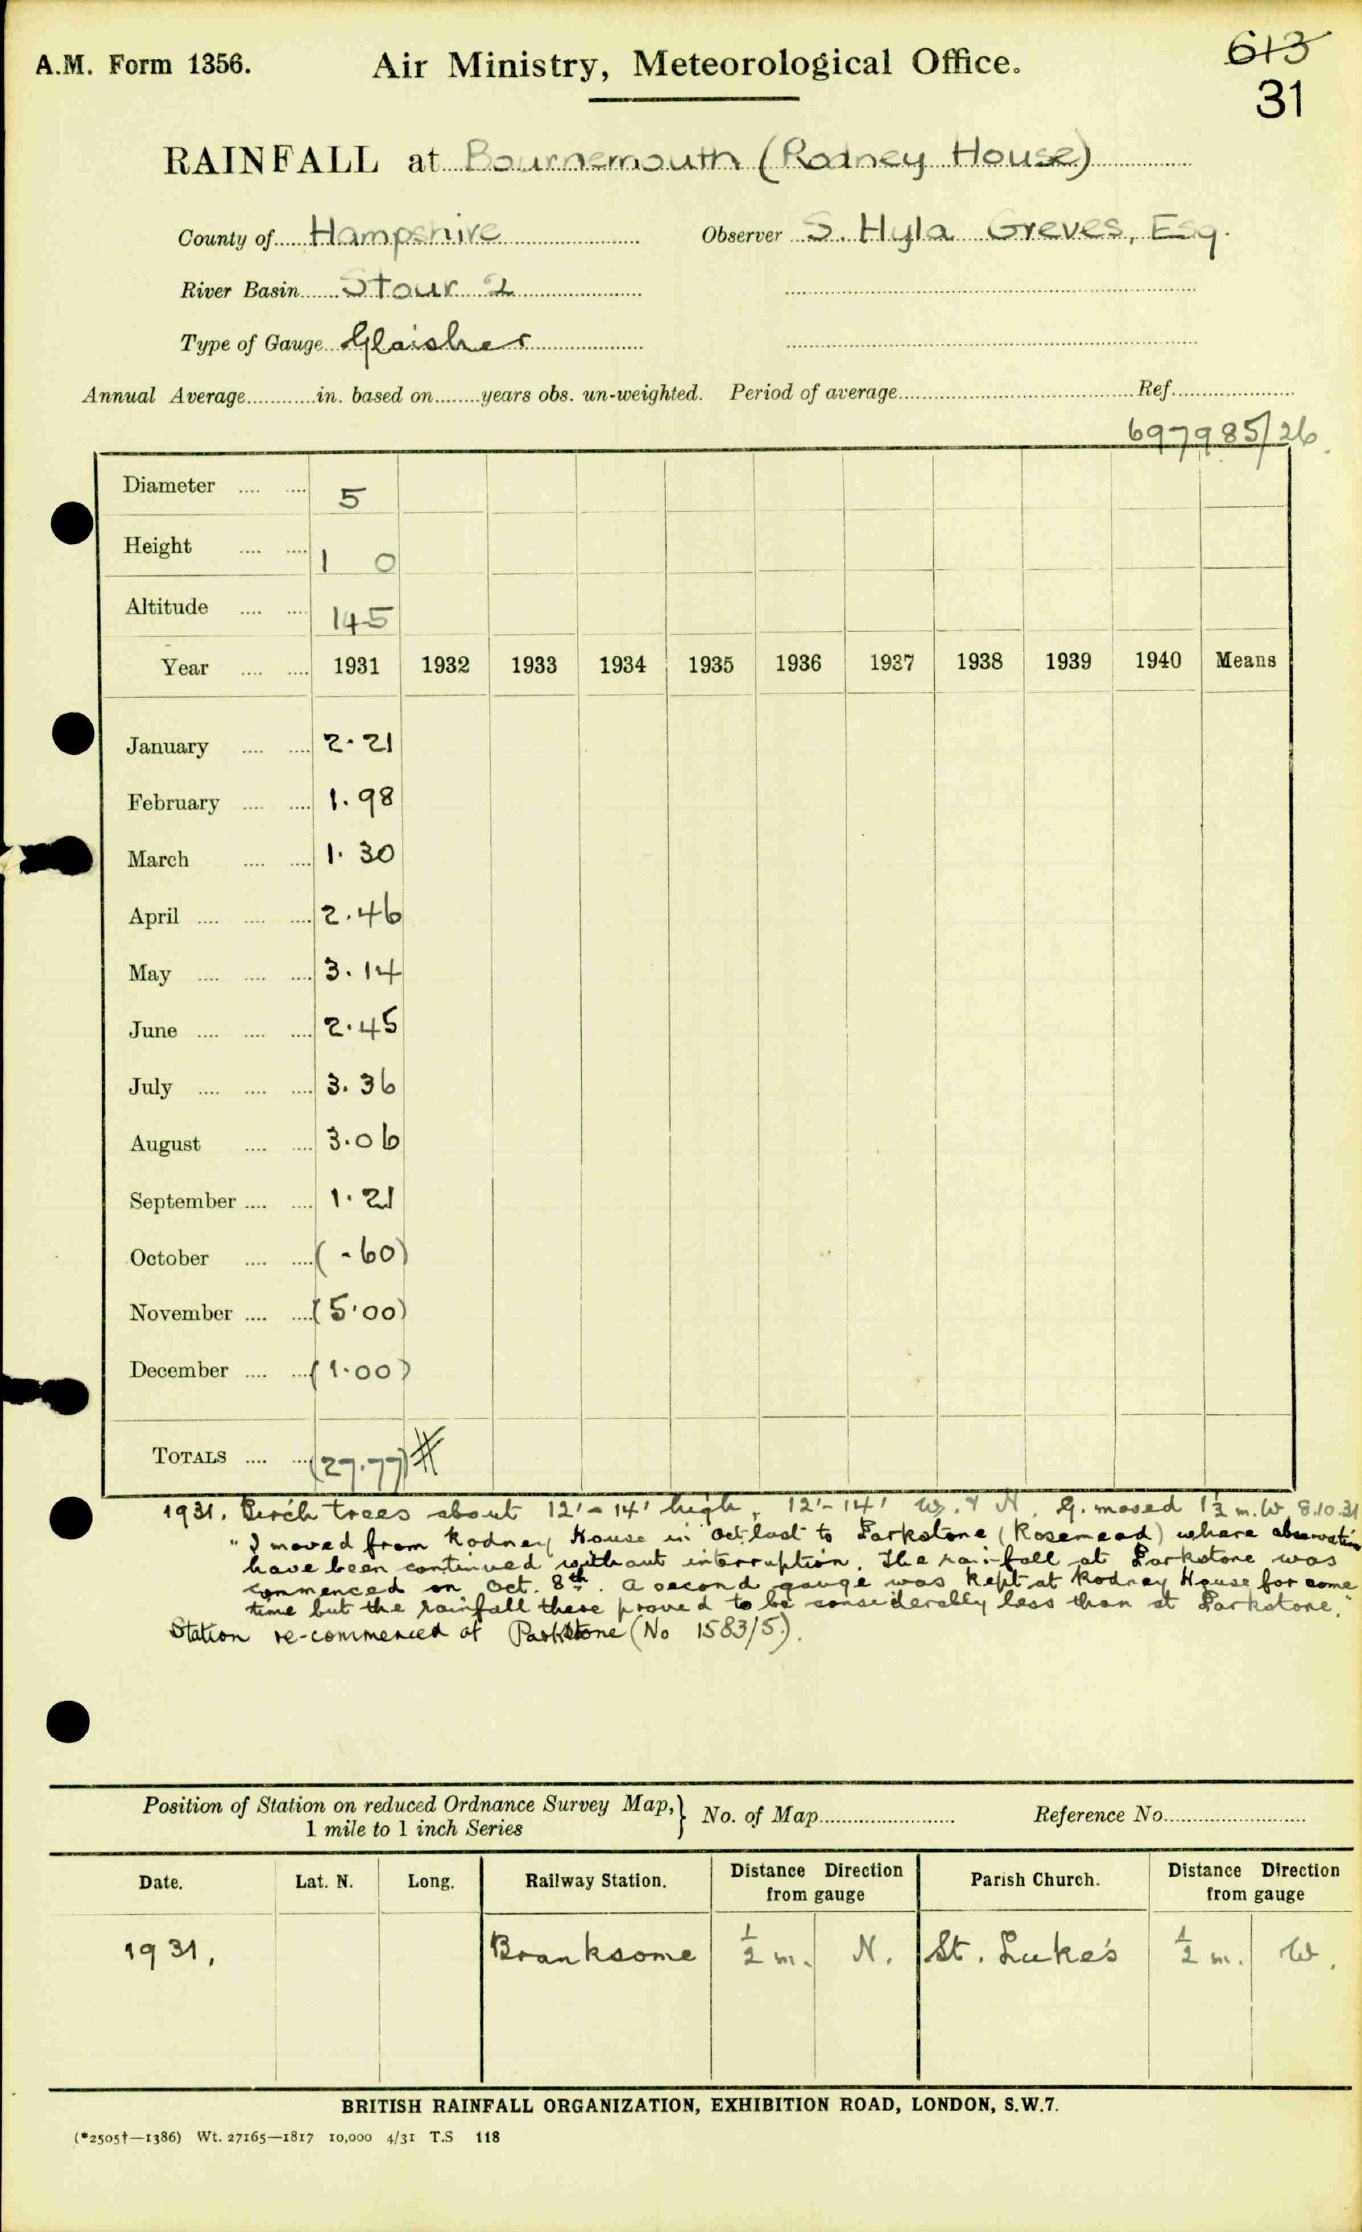 A.M. Form 1356. Air Ministry, Meteorological Office. 613
31
RAINFALL at Bournemouth (Rodney House)
County of Hampshire Observer S. Hyla Greves, Esq.
River Basin Stour 2
Type of Gauge Glaisher
Annual Average in. based on years obs. un-weighted. Period of average Ref.
697985/26
Diameter 5
Height 1 0
Altitude 145
Year 1931 1932 1933 1934 1935 1936 1937 1938 1939 1940 Means
January 2.21
February 1.98
March 1.30
April 2.46
May 3.14
June 2.45
July 3.36
August 3.06
September 1.21
October (.60)
November (5.00)
December (1.00)
TOTALS (27.77) #
1931. Birch trees about 12'-14' high, 12'-14' W. & N. G. moved 1½ m. W 8.10.31
"I moved from Rodney House in Oct. last to Parkstone (Rosemead) where observations
have been continued without interruption. The rainfall at Parkstone was
commenced on Oct. 8th. A second gauge was kept at Rodney House for some
time but the rainfall there proved to be considerably less than at Parkstone."
Station re-commenced at Parkstone (No 1583/5).
Position of Station on reduced Ordnance Survey Map, } No. of Map Reference No.
1 mile to 1 inch Series
Date. Lat. N. Long. Railway Station. Distance Direction from gauge Parish Church. Distance Direction from gauge
1931. Branksome ½ m. N. St. Luke's ½ m. W.
BRITISH RAINFALL ORGANIZATION, EXHIBITION ROAD, LONDON, S.W.7.
(*2505†—1386) Wt. 27165—1817 10,000 4/31 T.S 118